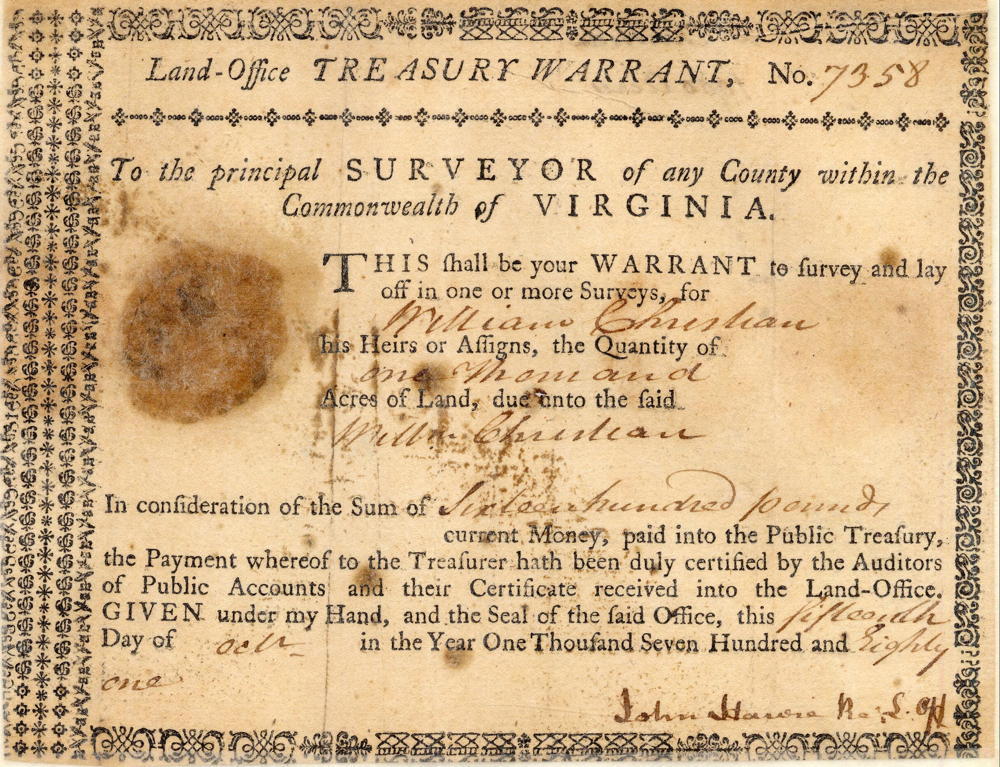 Land-Office TREASURY WARRANT, No. 7358
To the principal SURVEYOR of any County within the
Commonwealth of VIRGINIA.
THIS ſhall be your WARRANT to ſurvey and lay
off in one or more Surveys, for
William Christian
his Heirs or Aſſigns, the Quantity of
one Thousand
Acres of Land, due unto the ſaid
Willm Christian
In conſideration of the Sum of Sixteen hundred pounds
current Money, paid into the Public Treaſury,
the Payment whereof to the Treaſurer hath been duly certified by the Auditors
of Public Accounts and their Certificate received into the Land-Office.
GIVEN under my Hand, and the Seal of the ſaid Office, this fifteenth
Day of octr in the Year One Thouſand Seven Hundred and Eighty
one
John Harvie Re. L. Off